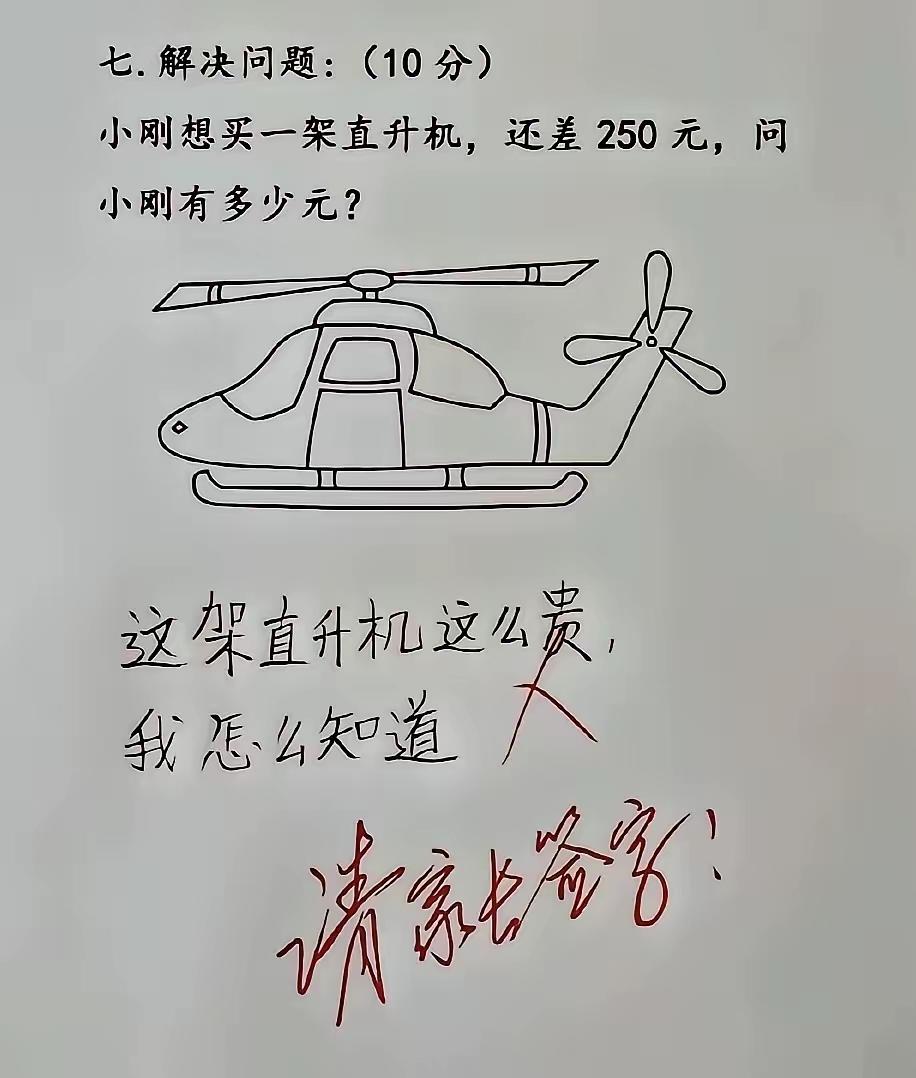 七.解决问题:（10 分）
小刚想买一架直升机，还差 250 元，问
小刚有多少元？
这架直升机这么贵，
我怎么知道
请家长签字！